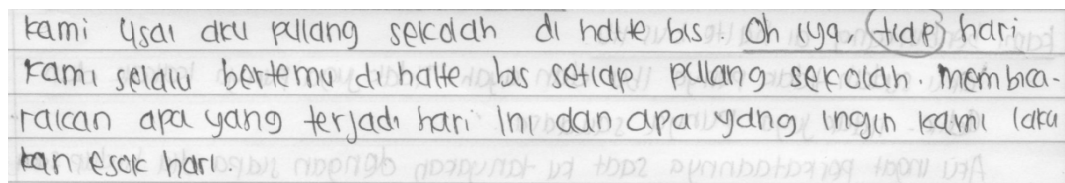 kami usai aku pulang sekolah di halte bis. Oh iya, tiap hari
kami selalu bertemu di halte bis setiap pulang sekolah. Membica-
rakan apa yang terjadi hari ini dan apa yang ingin kami laku
kan esok hari.